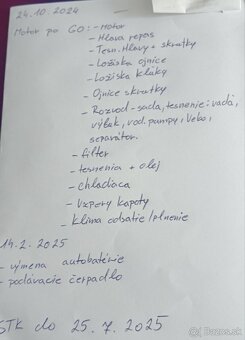 24.10.2024
Motor po GO: - Motor
- Hlava repas
- Tesn. Hlavy + skrutky
- Ložiská ojnice
- Ložiska kľuky
- Ojnice skrutky
- Rozvod - sada, tesnenie: vada,
výfuk, vod. pumpy, Vebo,
separátor.
- filter
- tesnenia + olej
- chladiaca
- Vzpery kapoty
- Klíma odsatie/plnenie
14.2.2025
- výmena autobatérie
- podávacie čerpadlo
STK do 25.7.2025
bazos.sk